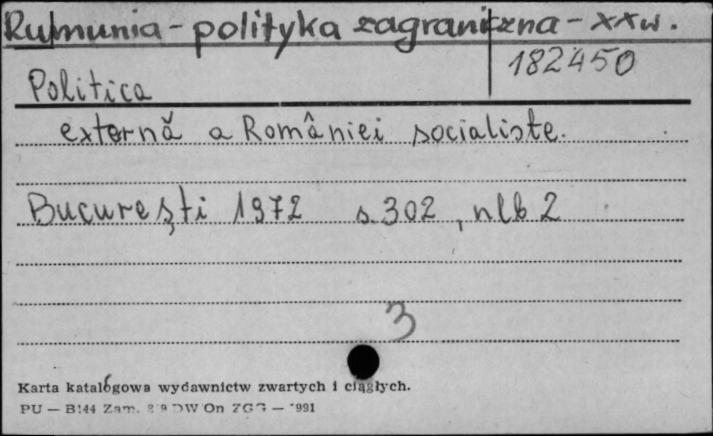 Rumunia - polityka zagraniczna - XX w.
182450
Politica
externă a României socialiste.
București 1972 s. 302, nlb 2
3
Karta katalogowa wydawnictw zwartych i ciągłych.
PU — B144 Zam. DW On ZGG — 991